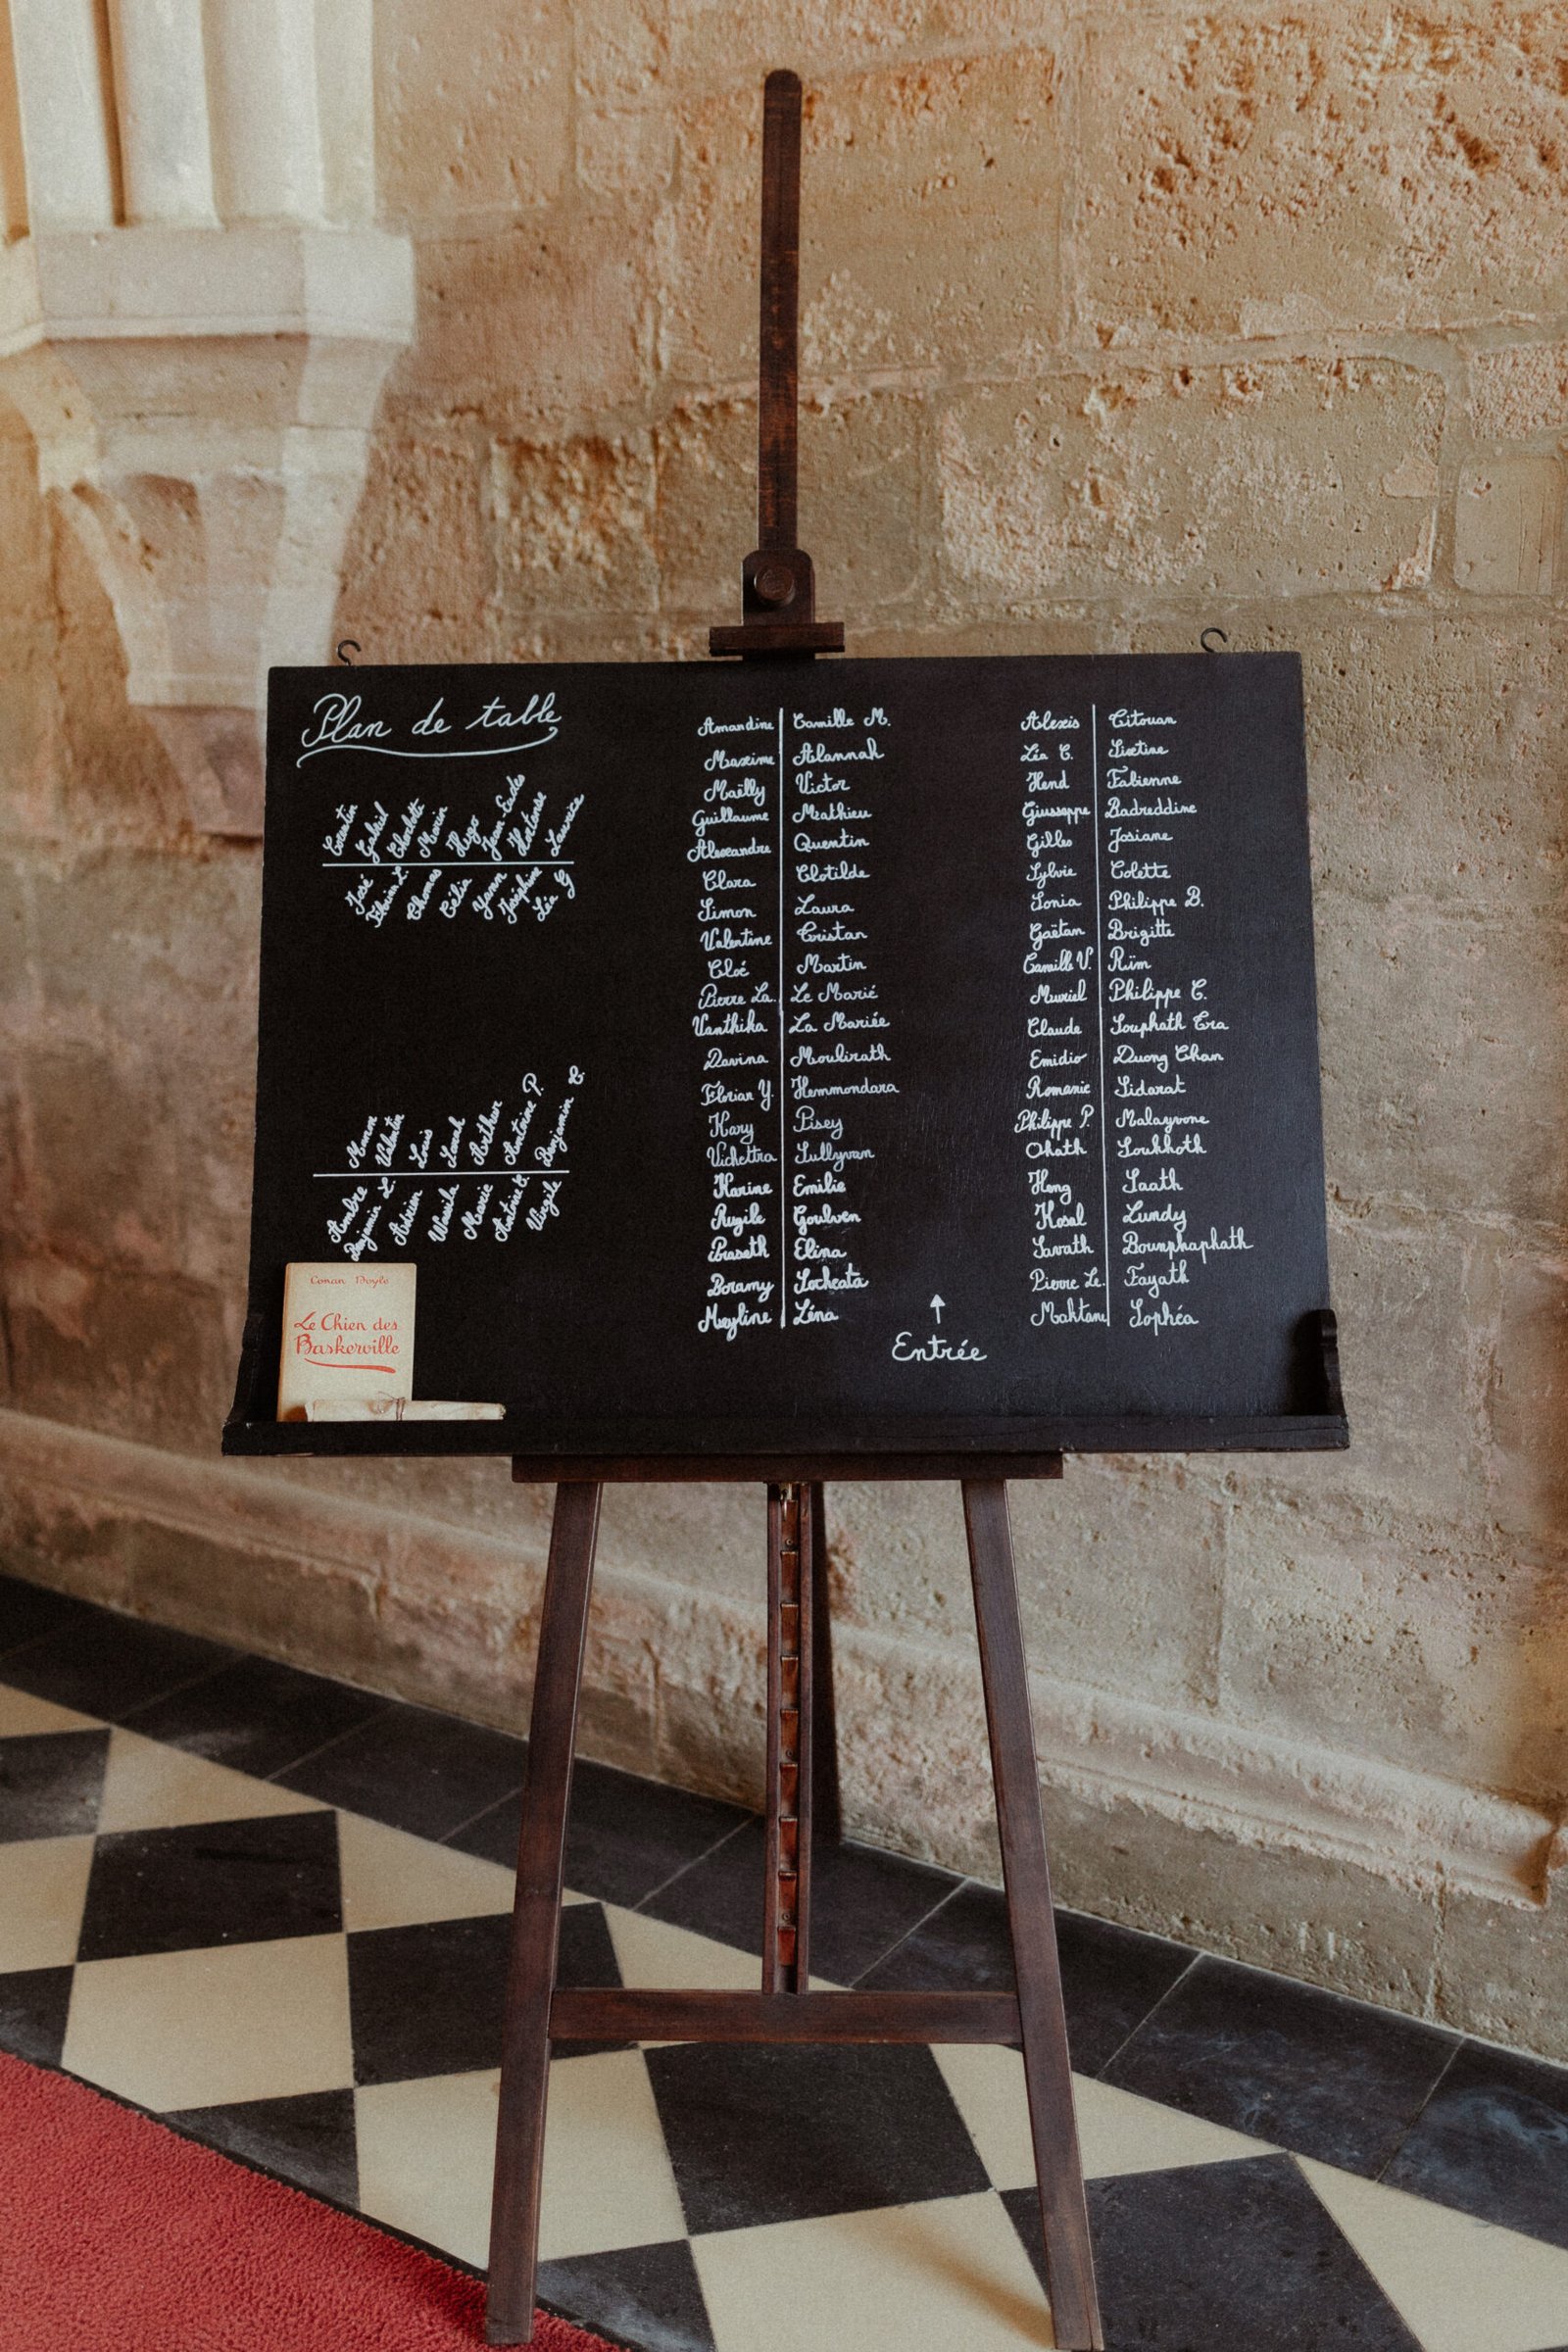 Plan de table
Corentin Gabriel Charlotte Marin Hugo Jean-Eudes Hortense Laurice
José Florian L. Thomas Célia Yann Joséphine Léa G
Valentin Loïs Arthur Antoine P. Benjamin C.
Ambre Benjamin L. Adrien Marie Virgile
Amandine Camille M.
Maxime Alannah
Maëlly Victor
Guillaume Mathieu
Alexandre Quentin
Clara Clotilde
Simon Laura
Valentine Tristan
Cloé Martin
Pierre La. Le Marié
Vanthika La Mariée
Davina Moulirath
Florian Y. Hemmondara
Kary Pisey
Vichettra Sullyvan
Karine Emilie
Rugile Goulven
Praseth Elina
Boramy Socheata
Meyline Léna
Alexis Titouan
Léa C. Sixtine
Hend Fabienne
Giuseppe Badreddine
Gilles Josiane
Sylvie Colette
Sonia Philippe B.
Gaëtan Brigitte
Camille V. Rïm
Muriel Philippe C.
Claude Souphath Tra
Emidio Duong Chan
Romanic Sidarat
Philippe P. Malayvone
Ohath Soukhoth
Hong Saath
Kosal Lundy
Savath Bounphaphath
Pierre Le. Fayath
Mahtani Sophéa
↑
Entrée
Conan Doyle
Le Chien des
Baskerville